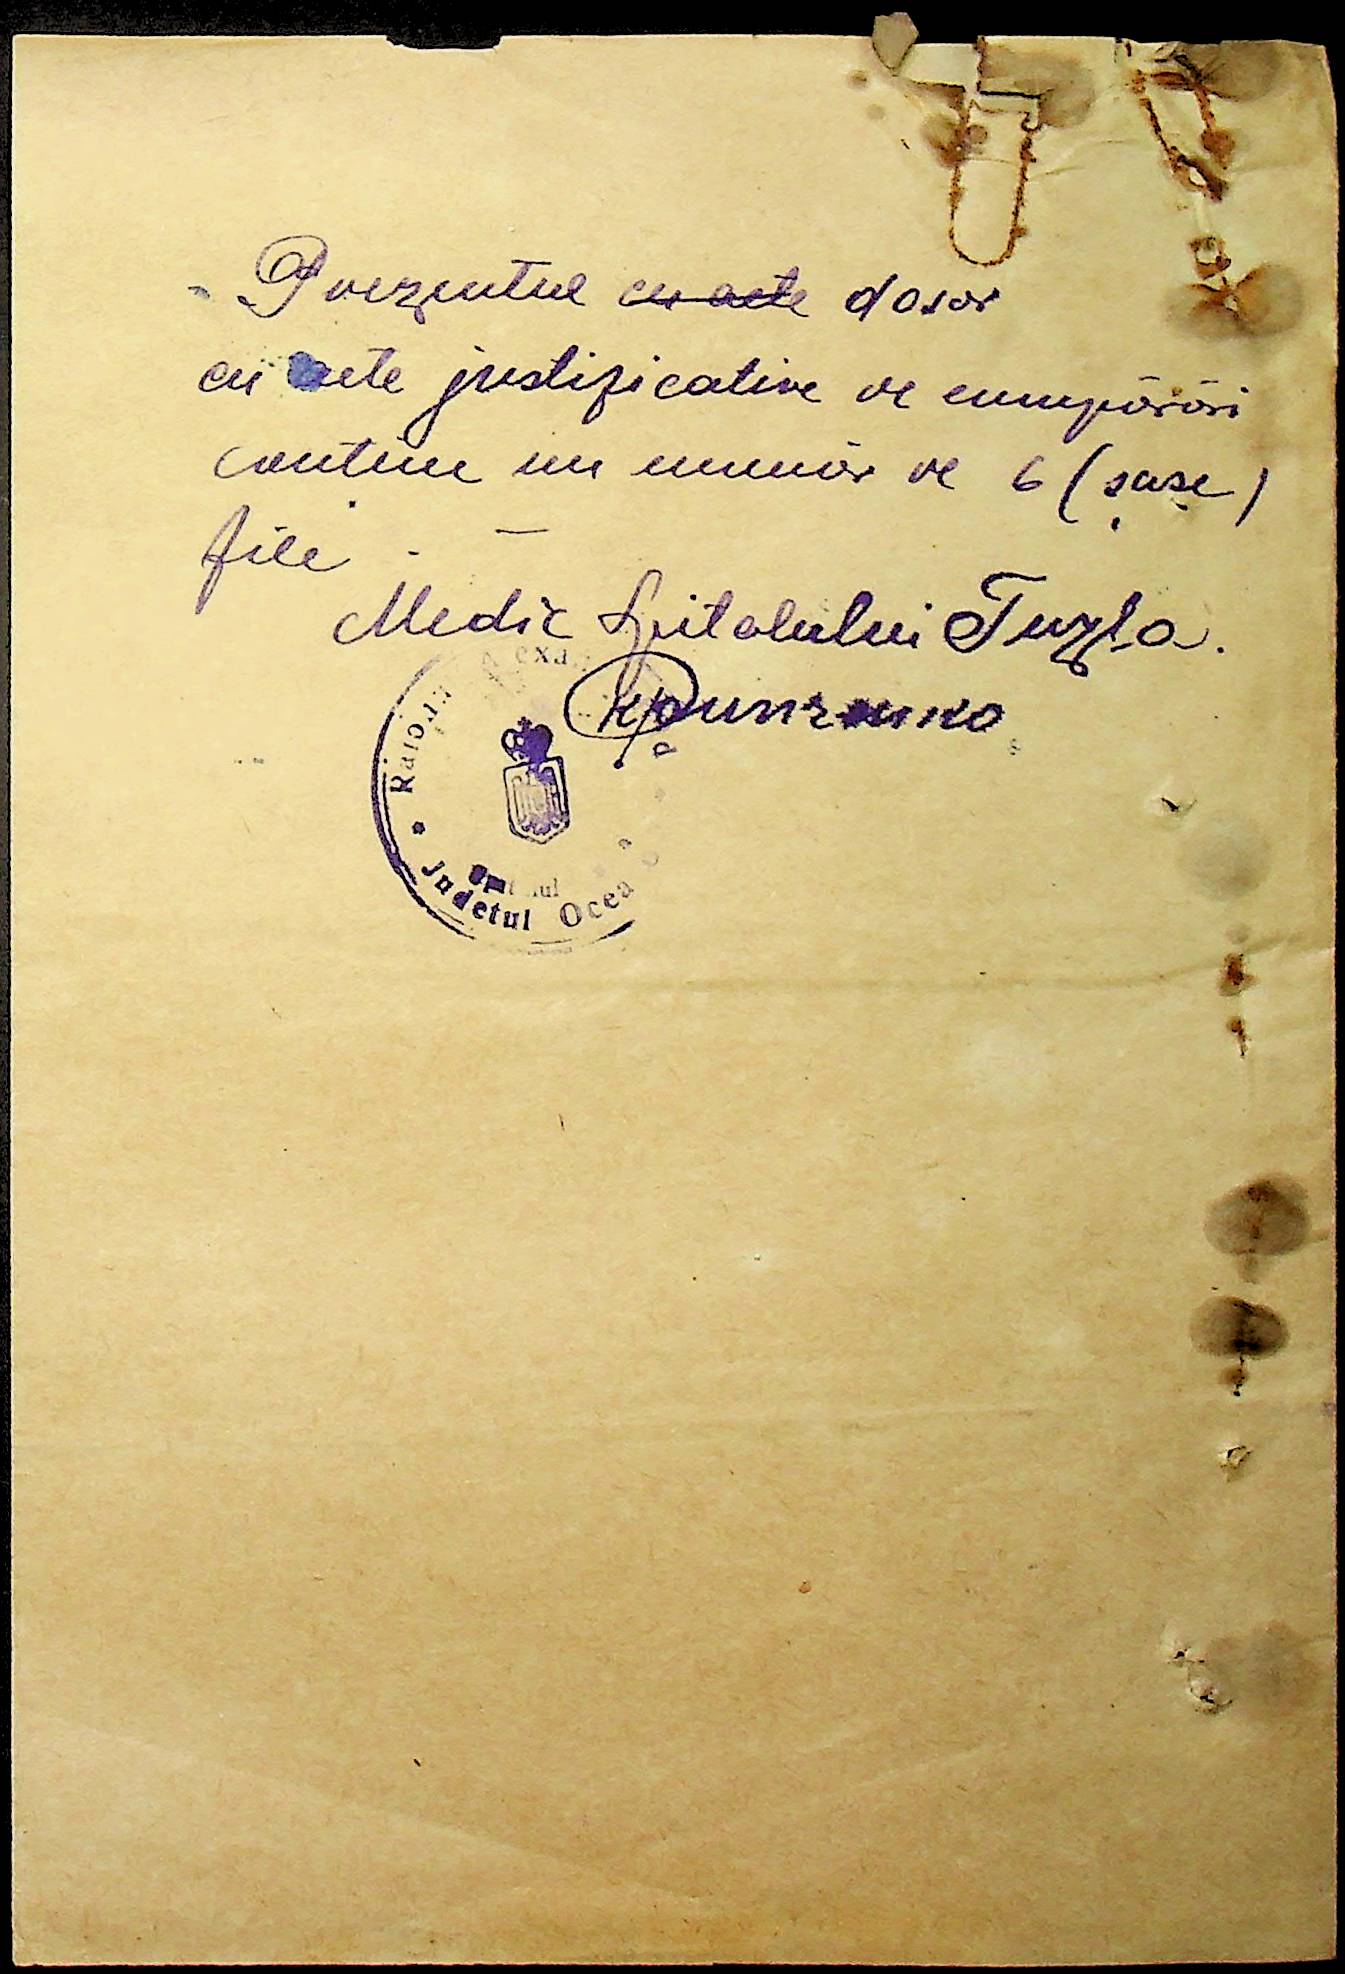 Prezentul cu acte dosar
cu acte justificative de cumpărări
contine un număr de 6 (șase)
file . —
Medic Spitalului Tuzla.
Raionul Alexa
Spitalul
Judetul Ocea